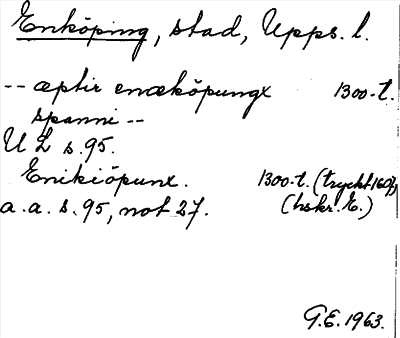 Enköping, stad, Upps. l.
-- æptir enæköpungx 1300-t.
spanni --
U L s.95.
Enikiöpunx. 1300-t. (tryckt 1607,
a.a. s.95, not 27. (hskr. E.)
G.E. 1963.